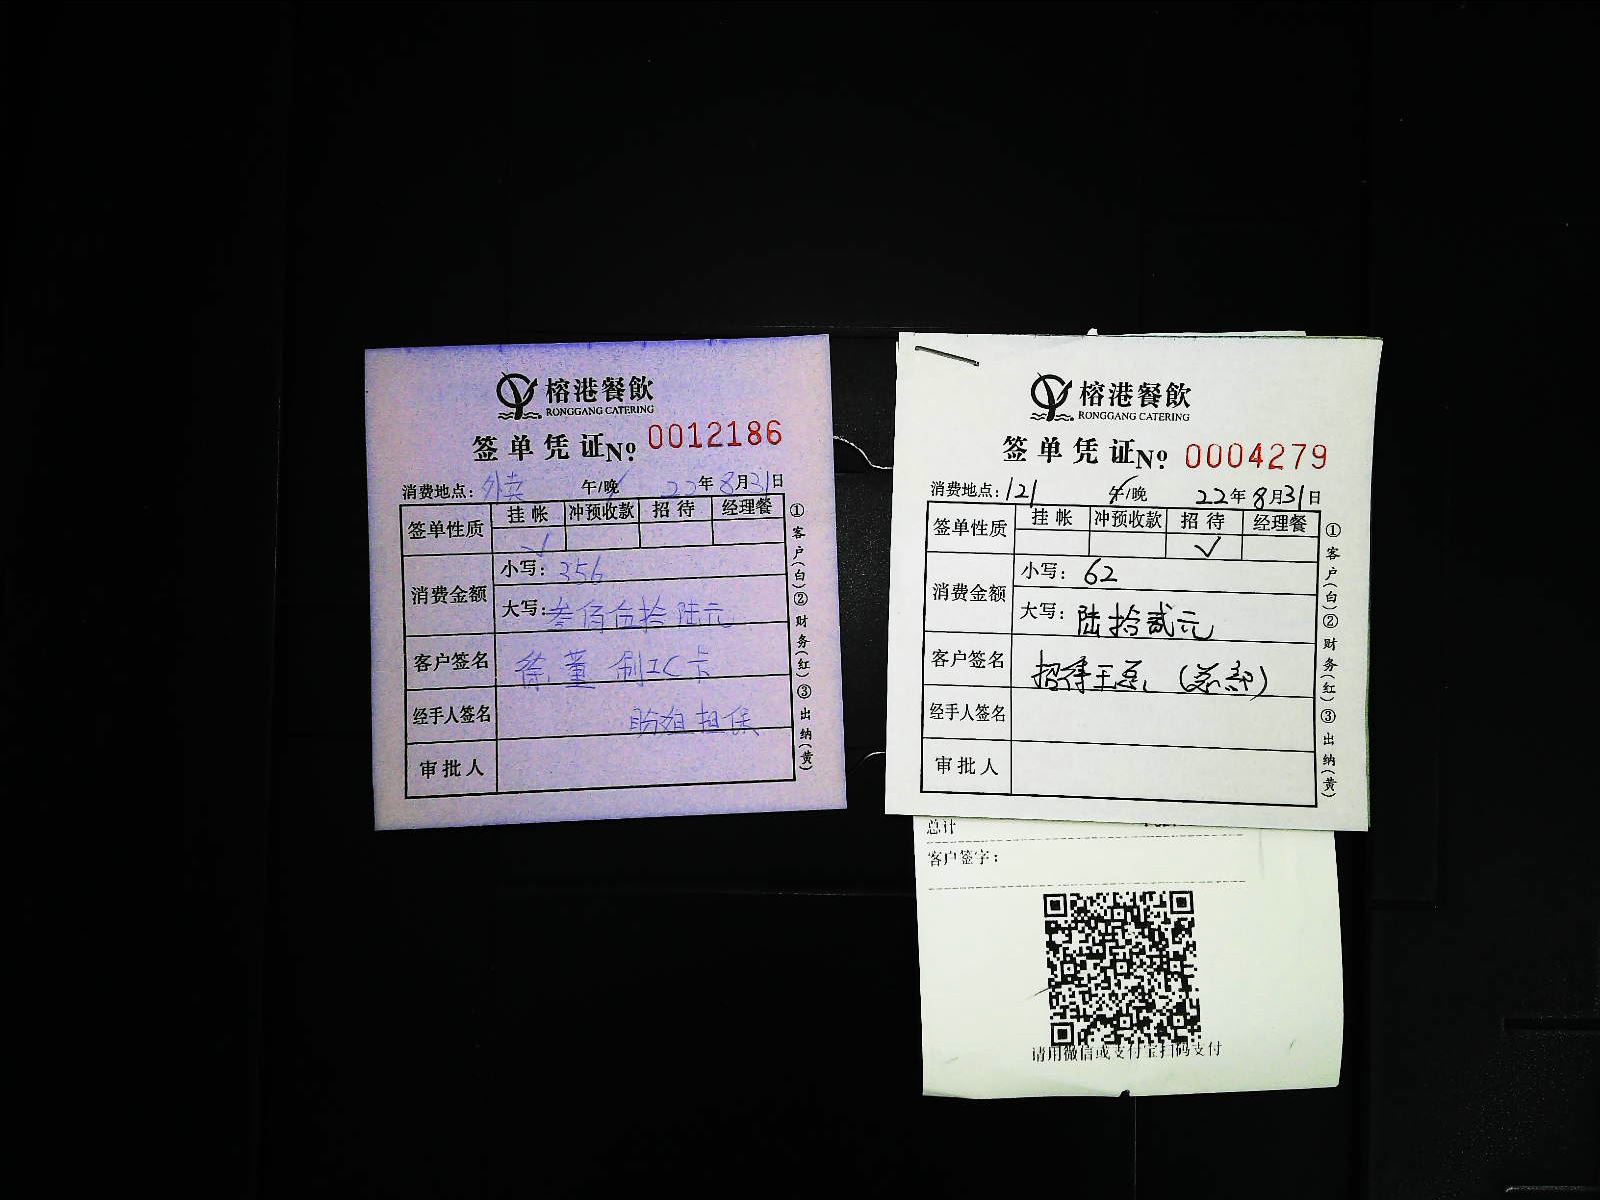 榕港餐飲
RONGGANG CATERING
签单凭证№ 0012186
消费地点：外卖 午/晚 22年8月31日
签单性质 挂帐 冲预收款 招待 经理餐
√
消费金额 小写：356
大写：叁佰伍拾陆元
客户签名 徐董 刷IC卡
经手人签名 担保
审批人
①客户(白)②财务(红)③出纳(黄)
榕港餐飲
RONGGANG CATERING
签单凭证№ 0004279
消费地点：121 午/晚 22年8月31日
签单性质 挂帐 冲预收款 招待 经理餐
√
消费金额 小写：62
大写：陆拾贰元
客户签名 招待王磊（总部）
经手人签名
审批人
①客户(白)②财务(红)③出纳(黄)
总计
客户签字：
请用微信或支付宝扫码支付